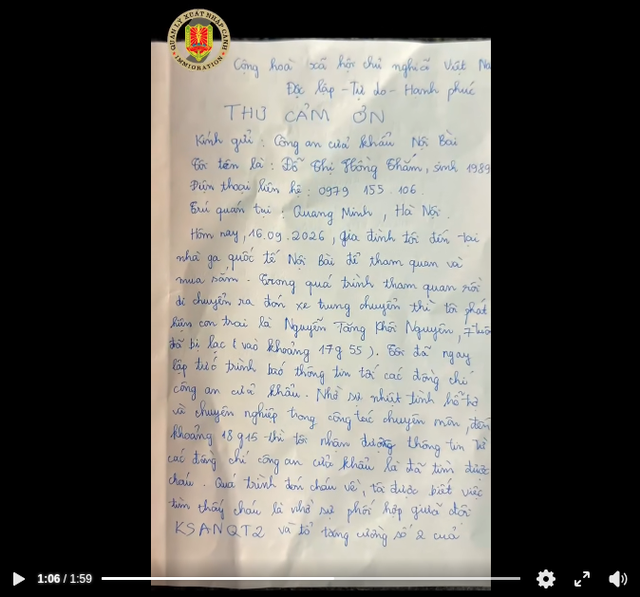 QUẢN LÝ XUẤT NHẬP CẢNH
IMMIGRATION
Cộng hoà xã hội chủ nghĩa Việt Na
Độc lập - Tự do - Hạnh phúc
THƯ CẢM ƠN
Kính gửi : Công an cửa khẩu Nội Bài
Tôi tên là : Đỗ Thị Hồng Thắm, sinh 1989
Điện thoại liên hệ : 0979 155 106
Trú quán tại : Quang Minh, Hà Nội.
Hôm nay, 16.09.2026, gia đình tôi đến tại
nhà ga quốc tế Nội Bài để tham quan và
mua sắm. Trong quá trình tham quan rồi
di chuyển ra đón xe trung chuyển thì tôi phát
hiện con trai là Nguyễn Tăng Khôi Nguyên, 7 tuổi
đã bị lạc ( vào khoảng 17g55 ). Tôi đã ngay
lập tức trình báo thông tin tới các đồng chí
công an cửa khẩu. Nhờ sự nhiệt tình hỗ trợ
và chuyên nghiệp trong công tác chuyên môn, đến
khoảng 18g15 thì tôi nhận được thông tin từ
các đồng chí công an cửa khẩu là đã tìm được
cháu. Quá trình đón cháu về, tôi được biết việc
tìm thấy cháu là nhờ sự phối hợp giữa đội
KSANQT2 và tổ tăng cường số 2 của
1:06 / 1:59